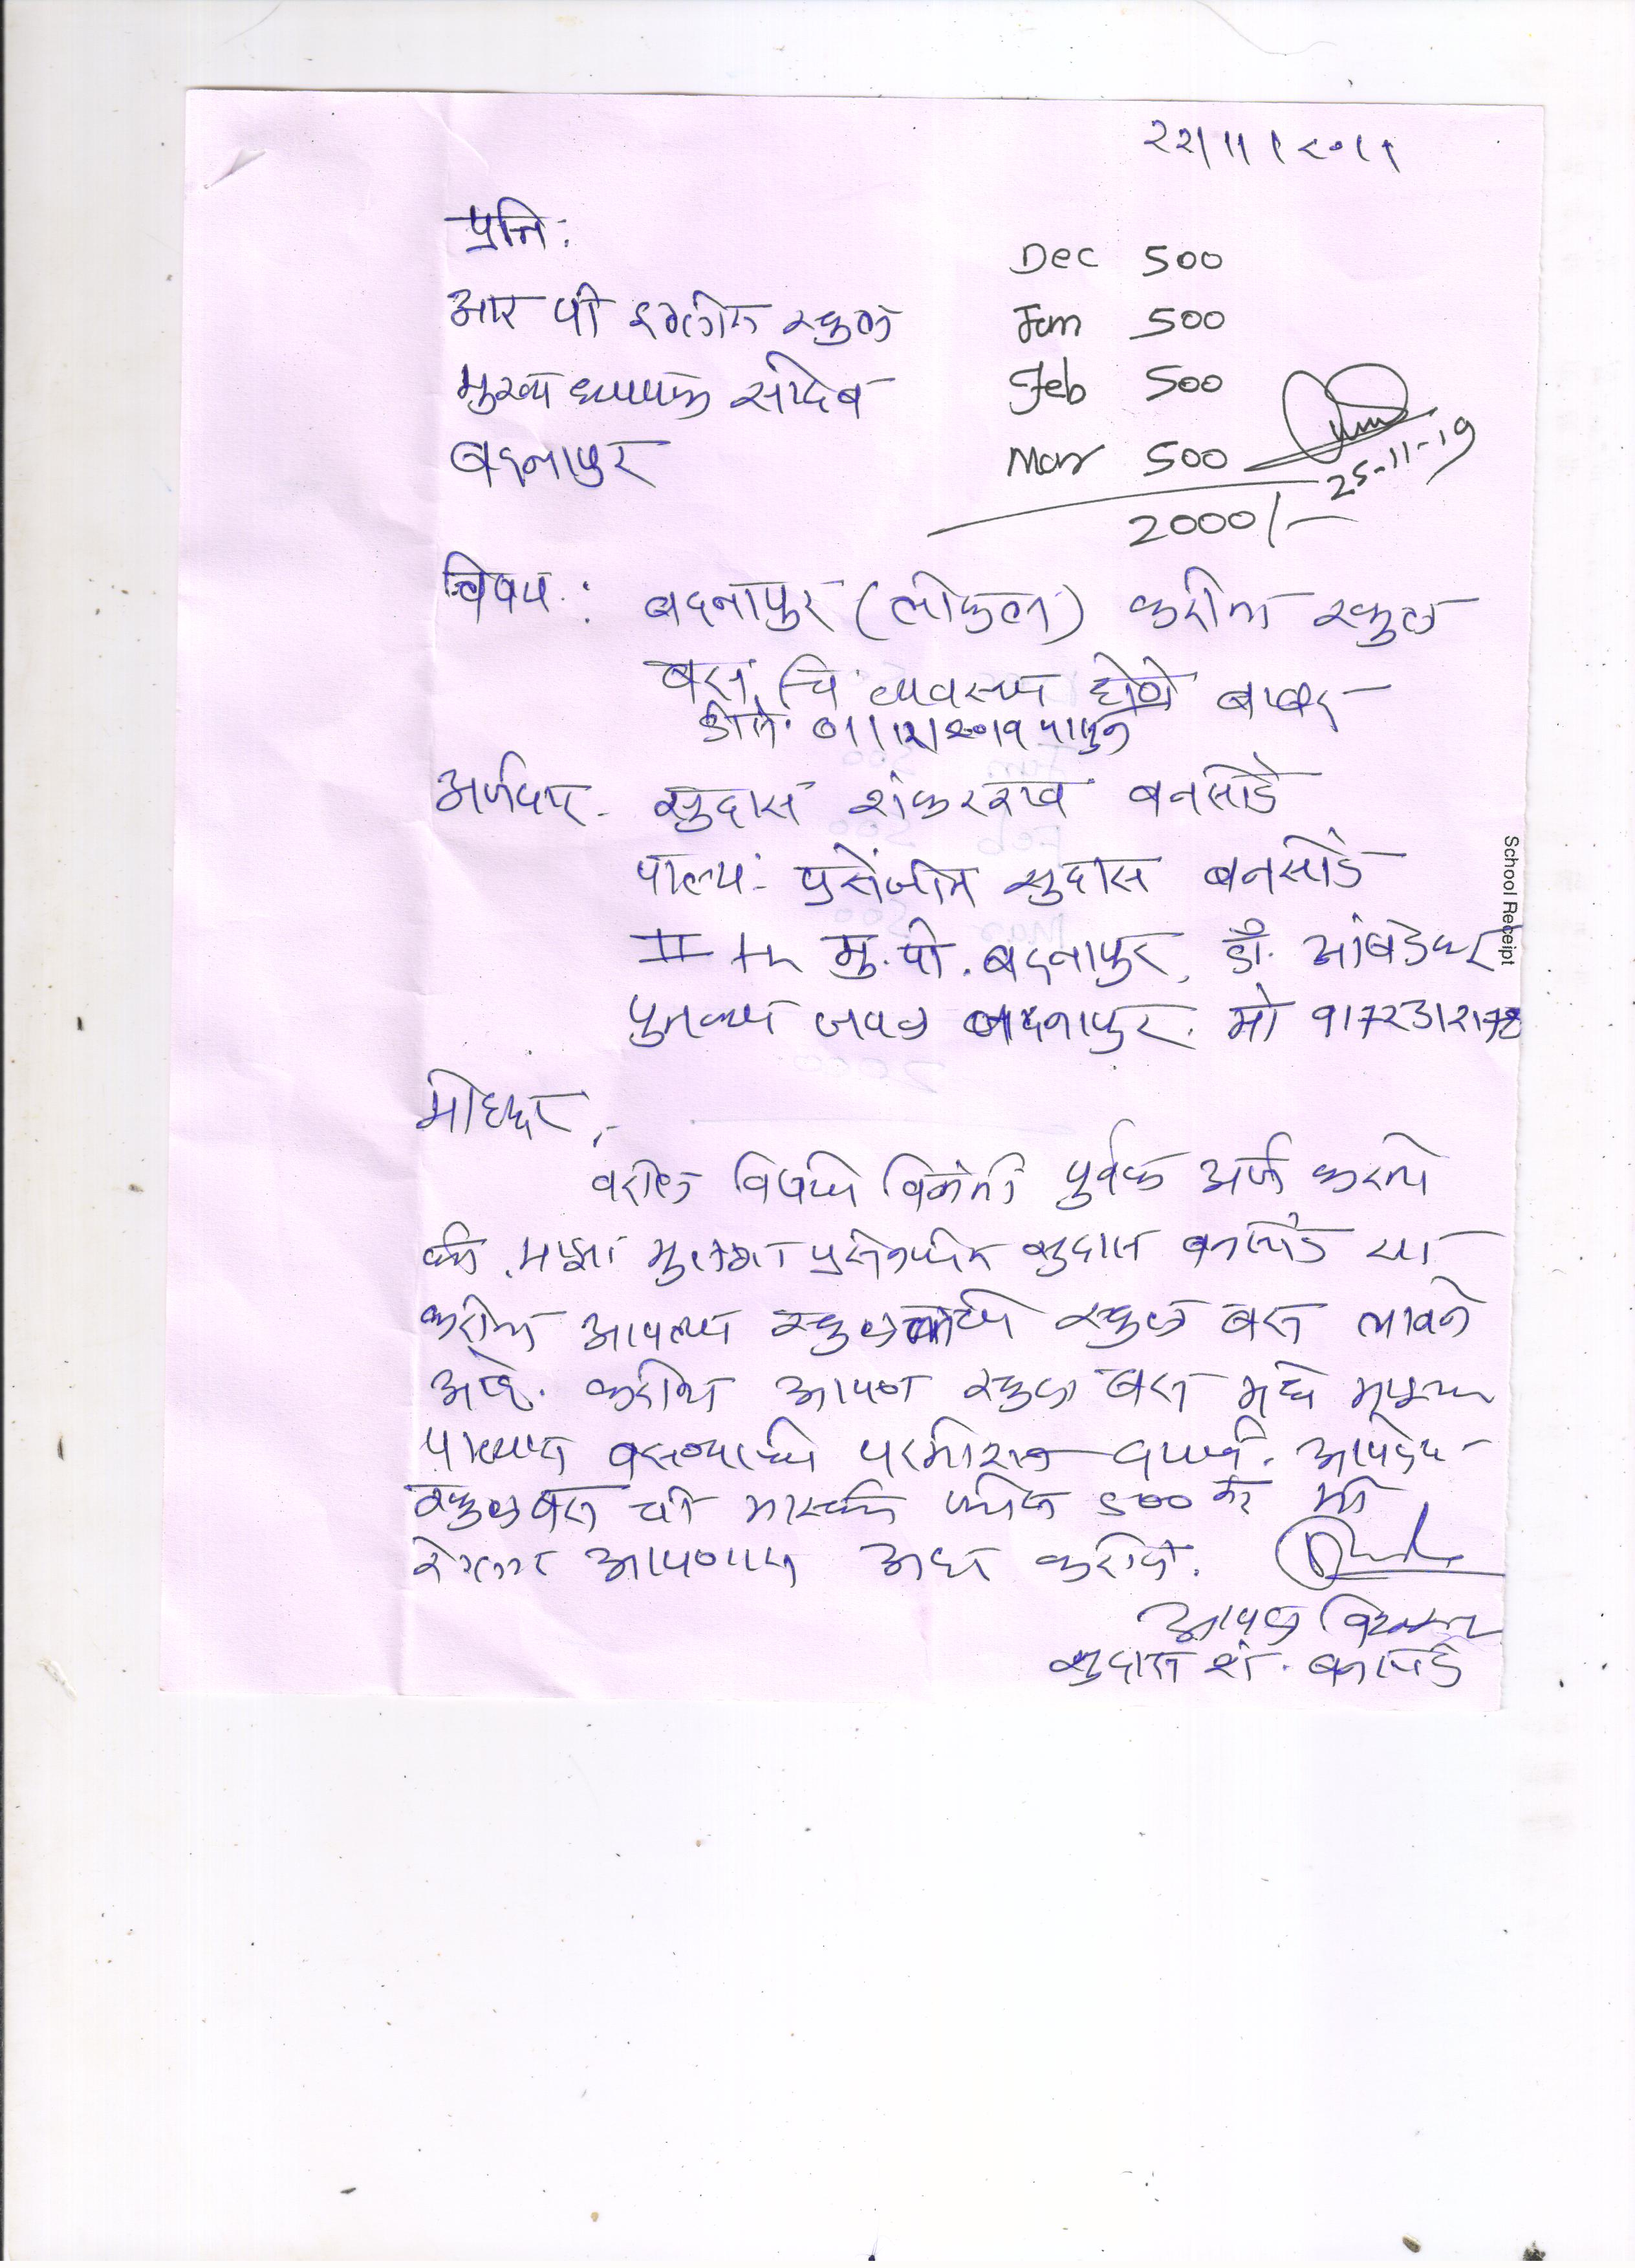 २२/११/२०१९
प्रति:
आर पी इंग्लीश स्कुल
मुख्याध्यापक साहेब
बदनापुर
Dec 500
Jan 500
Feb 500
Mar 500
25-11-19
2000/-
विषय: बदनापुर (लोकल) करीता स्कुल
बस चि व्यवस्था होणे बाबद
01/12/2019 पासुन
अर्जदार - सुदास शंकरराव बनसोडे
पाल्य:- प्रसेंजीत सुदास बनसोडे
II th मु. पो. बदनापुर, डॉ. आंबेडकर
पुतळ्या जवळ बदनापुर. मो 9172312178
महोदय,
वरील विषयी विनंती पुर्वक अर्ज करतो
की, माझा मुलगा प्रसेनजीत सुदास बनसोडे या
करीता आपल्या स्कुल स्कुल बस लावने
आहे. करीता आपण स्कुल बस मध्ये माझ्या
पाल्यास बसण्याची परमीशन द्यावी.
स्कुलबस ची मासीक फीस 500 रु मी
रेगुलर आपणास अदा करील.
आपला विश्वासु
सुदास शं. बनसोडे
School Receipt